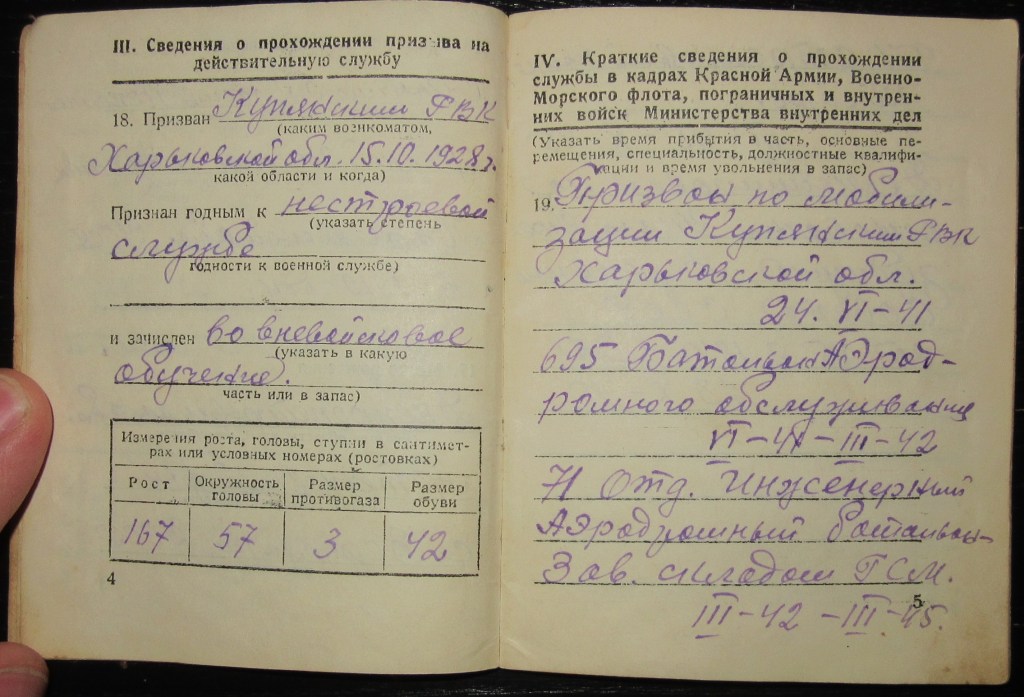 III. Сведения о прохождении призыва на
действительную службу
18. Призван Купянским РВК
(каким военкоматом,
Харьковской обл. 15.10.1928 г.
какой области и когда)
Признан годным к нестроевой
(указать степень
службе
годности к военной службе)
и зачислен во вневойсковое
(указать в какую
обучение.
часть или в запас)
Измерения роста, головы, ступни в сантимет-
рах или условных номерах (ростовках)
Рост Окружность головы Размер противогаза Размер обуви
167 57 3 42
4
IV. Краткие сведения о прохождении
службы в кадрах Красной Армии, Военно-
Морского флота, пограничных и внутрен-
них войск Министерства внутренних дел
(Указать время прибытия в часть, основные пе-
ремещения, специальность, должностные квалифи-
кации и время увольнения в запас)
19. Призван по мобили-
зации Купянским РВК
Харьковской обл.
24. VI-41
695 Батальон Аэрод-
ромного обслуживания
VI-41-III-42
71 Отд. Инженерный
Аэродромный батальон-
Зав. складом ГСМ.
5
III-42 -III-45.